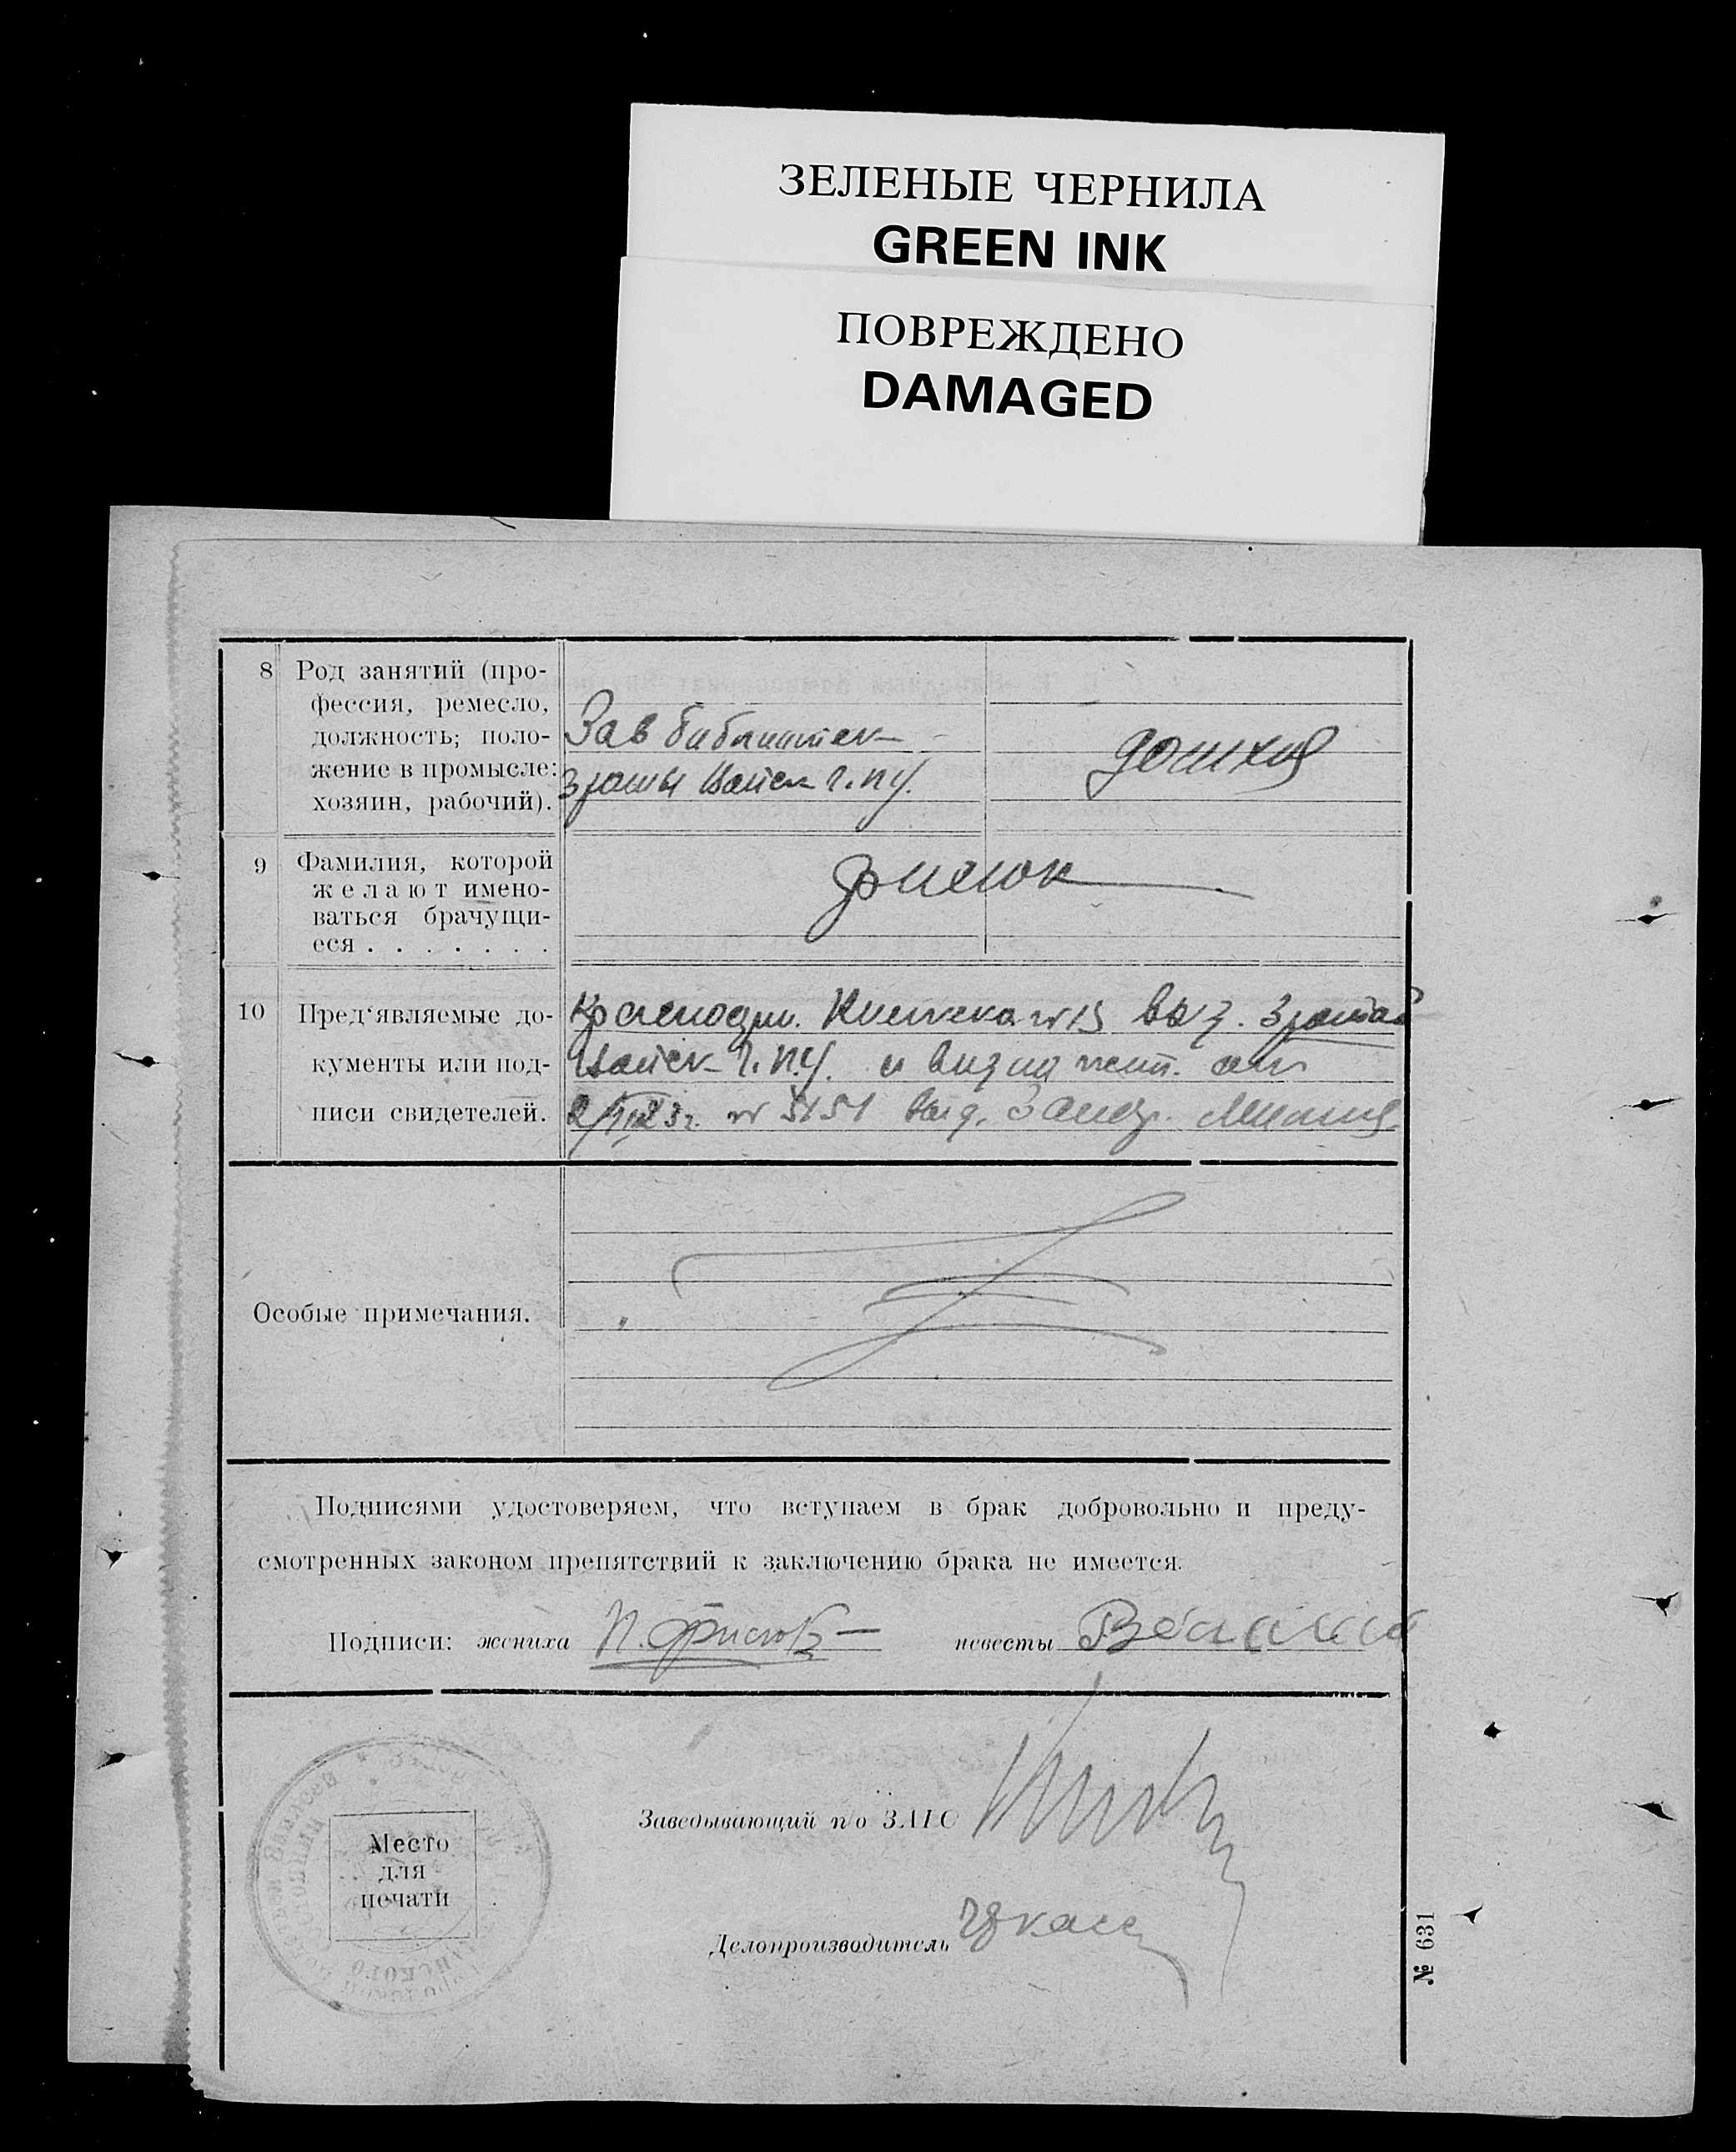 ЗЕЛЕНЫЕ ЧЕРНИЛА
GREEN INK
ПОВРЕЖДЕНО
DAMAGED
8 Род занятий (про-
фессия, ремесло,
должность; поло-
жение в промысле:
хозяин, рабочий).
Зав библиотек
войск Г.П.У.
9 Фамилия, которой
желают имено-
ваться брачущи-
еся . . . . . . .
Фисюк
10 Пред‘являемые до-
кументы или под-
писи свидетелей.
Красноарм. Книжка № 15 выд.
войск Г.П.У. и вид на жит. от
23г. № 5151 выд.
Особые примечания.
Подписями удостоверяем, что вступаем в брак добровольно и преду-
смотренных законом препятствий к заключению брака не имеется.
Подписи: жениха П. Фисюк невесты
Заведывающий п/о ЗАГС
Место
для
печати
Делопроизводитель
№ 631